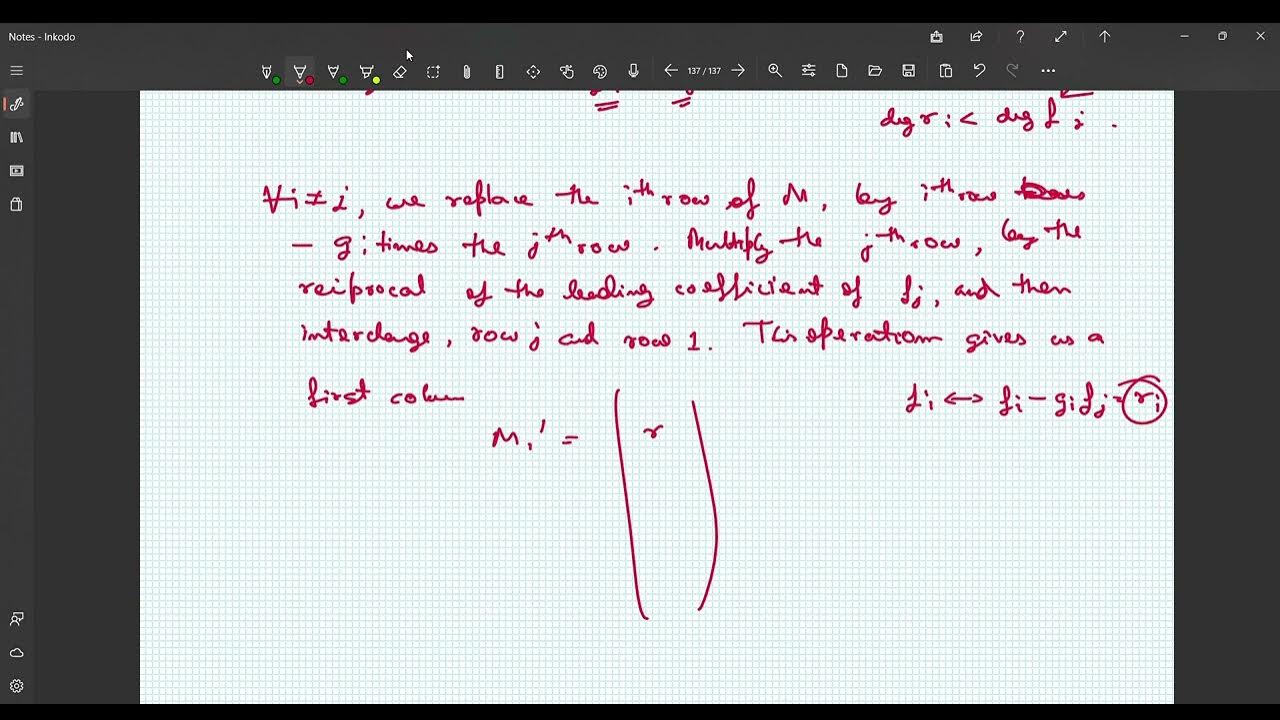 Notes - Inkodo
137 / 137
deg r i < deg f j .
∀ i ≠ j, we replace the i th row of M, by i th row
- g i times the j th row. Multiply the j th row, by the
reciprocal of the leading coefficient of f j, and then
interchange, row j and row 1. This operation gives as a
first colum
f i ↔ f i - g i f j = r i
M 1 ' = ( r )